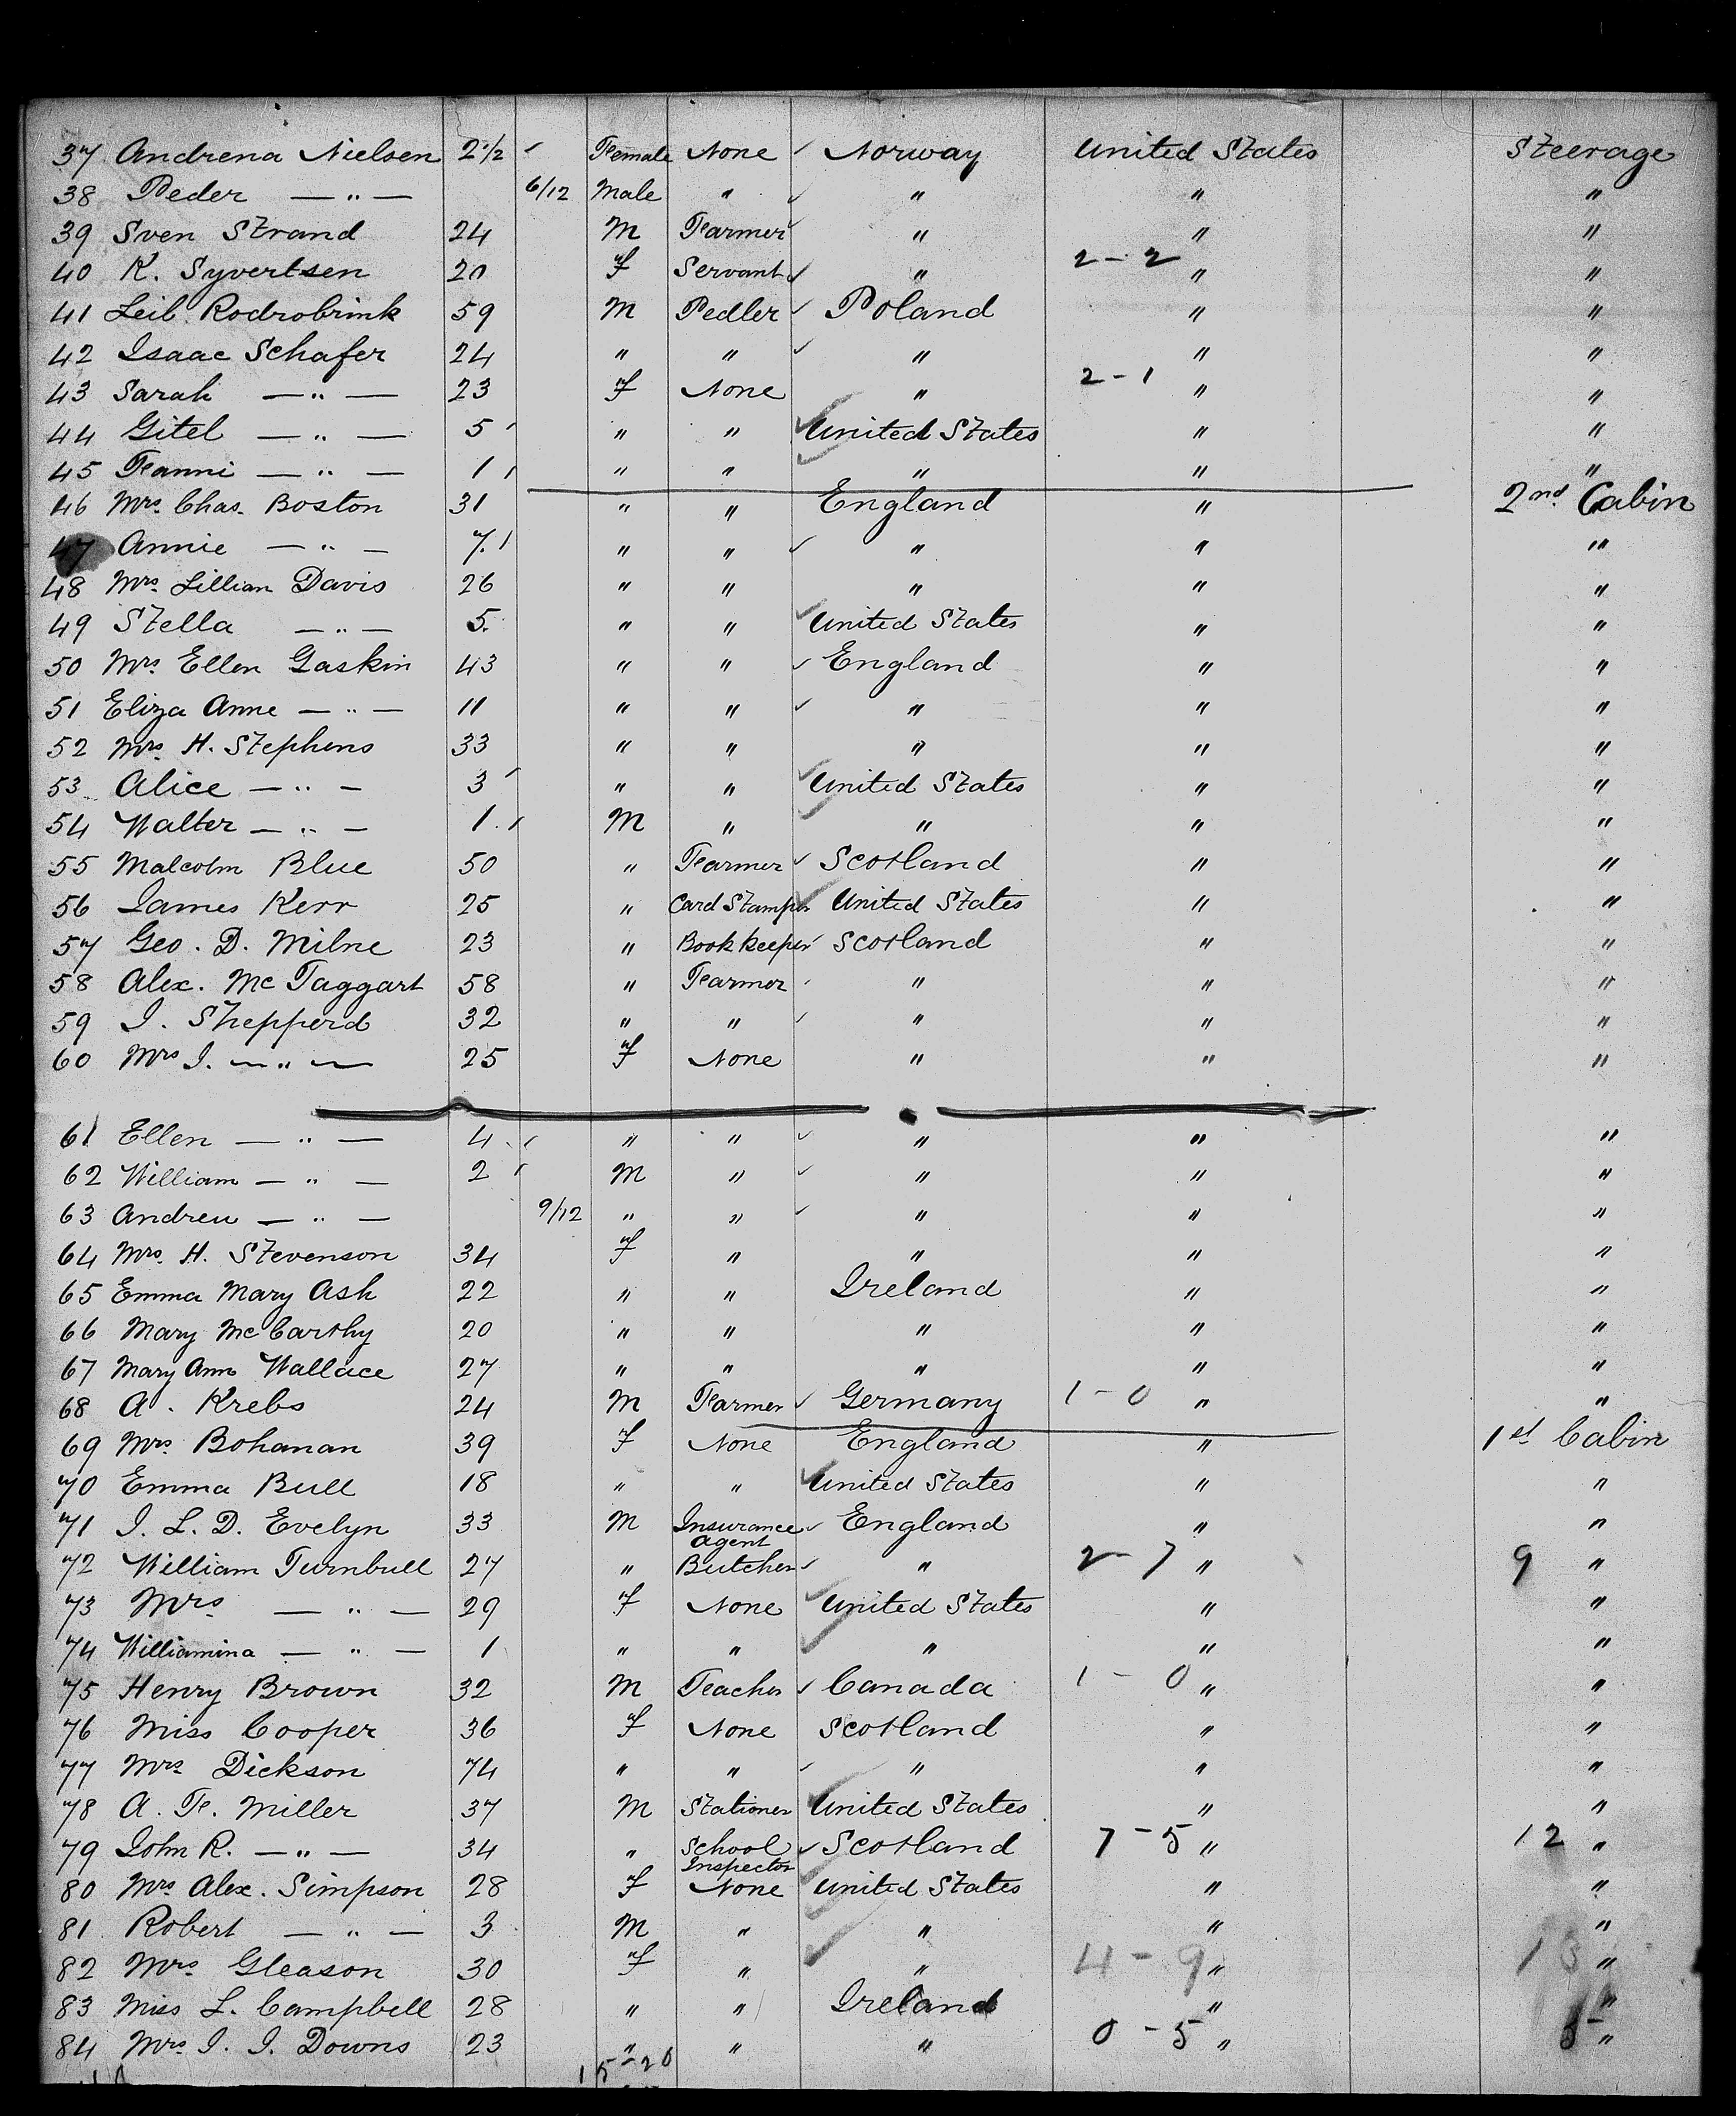 37 Andrena Nielsen 2 1/2 Female None Norway United States Steerage
38 Peder — " — 6/12 Male " " " "
39 Sven Strand 24 M Farmer " " "
40 K. Syvertsen 20 F Servant " 2-2 " "
41 Leib Rodrobrink 59 M Pedler Poland " "
42 Isaac Schafer 24 " " " " "
43 Sarah — " — 23 F None " 2-1 " "
44 Gitel — " — 5 " " United States " "
45 Fanni — " — 1 " " " " "
46 Mrs. Chas. Boston 31 " " England " 2nd Cabin
47 Annie — " — 7 " " " " "
48 Mrs. Lillian Davis 26 " " " " "
49 Stella — " — 5 " " United States " "
50 Mrs Ellen Gaskin 43 " " England " "
51 Eliza Anne — " — 11 " " " " "
52 Mrs. H. Stephens 33 " " " " "
53 Alice — " — 3 " " United States " "
54 Walter — " — 1 M " " " "
55 Malcolm Blue 50 " Farmer Scotland " "
56 James Kerr 25 " Card Stamper United States " "
57 Geo. D. Milne 23 " Bookkeeper Scotland " "
58 Alex. McTaggart 58 " Farmer " " "
59 J. Shepperd 32 " " " " "
60 Mrs J. — " — 25 F None " " "
61 Ellen — " — 4 " " " " "
62 William — " — 2 M " " " "
63 Andrew — " — 9/12 " " " " "
64 Mrs. H. Stevenson 34 F " " " "
65 Emma Mary Ash 22 " " Ireland " "
66 Mary McCarthy 20 " " " " "
67 Mary Ann Wallace 27 " " " " "
68 A. Krebs 24 M Farmer Germany 1-0 " "
69 Mrs. Bohanan 39 F None England " 1st Cabin
70 Emma Bull 18 " " United States " "
71 J. L. D. Evelyn 33 M Insurance Agent England " "
72 William Turnbull 27 " Butcher " 2-7 " 9 "
73 Mrs — " — 29 F None United States " "
74 Williamina — " — 1 " " " " "
75 Henry Brown 32 M Teacher Canada 1-0 " "
76 Miss Cooper 36 F None Scotland " "
77 Mrs Dickson 74 " " " " "
78 A. F. Miller 37 M Stationer United States " "
79 John R. — " — 34 " School Inspector Scotland 7-5 " 12 "
80 Mrs. Alex. Simpson 28 F None United States " "
81 Robert — " — 3 M " " " "
82 Mrs Gleason 30 F " " 4-9 " 13 "
83 Miss L. Campbell 28 " " Ireland " "
84 Mrs. J. J. Downs 23 " " " 0-5 " 5 "
15-20